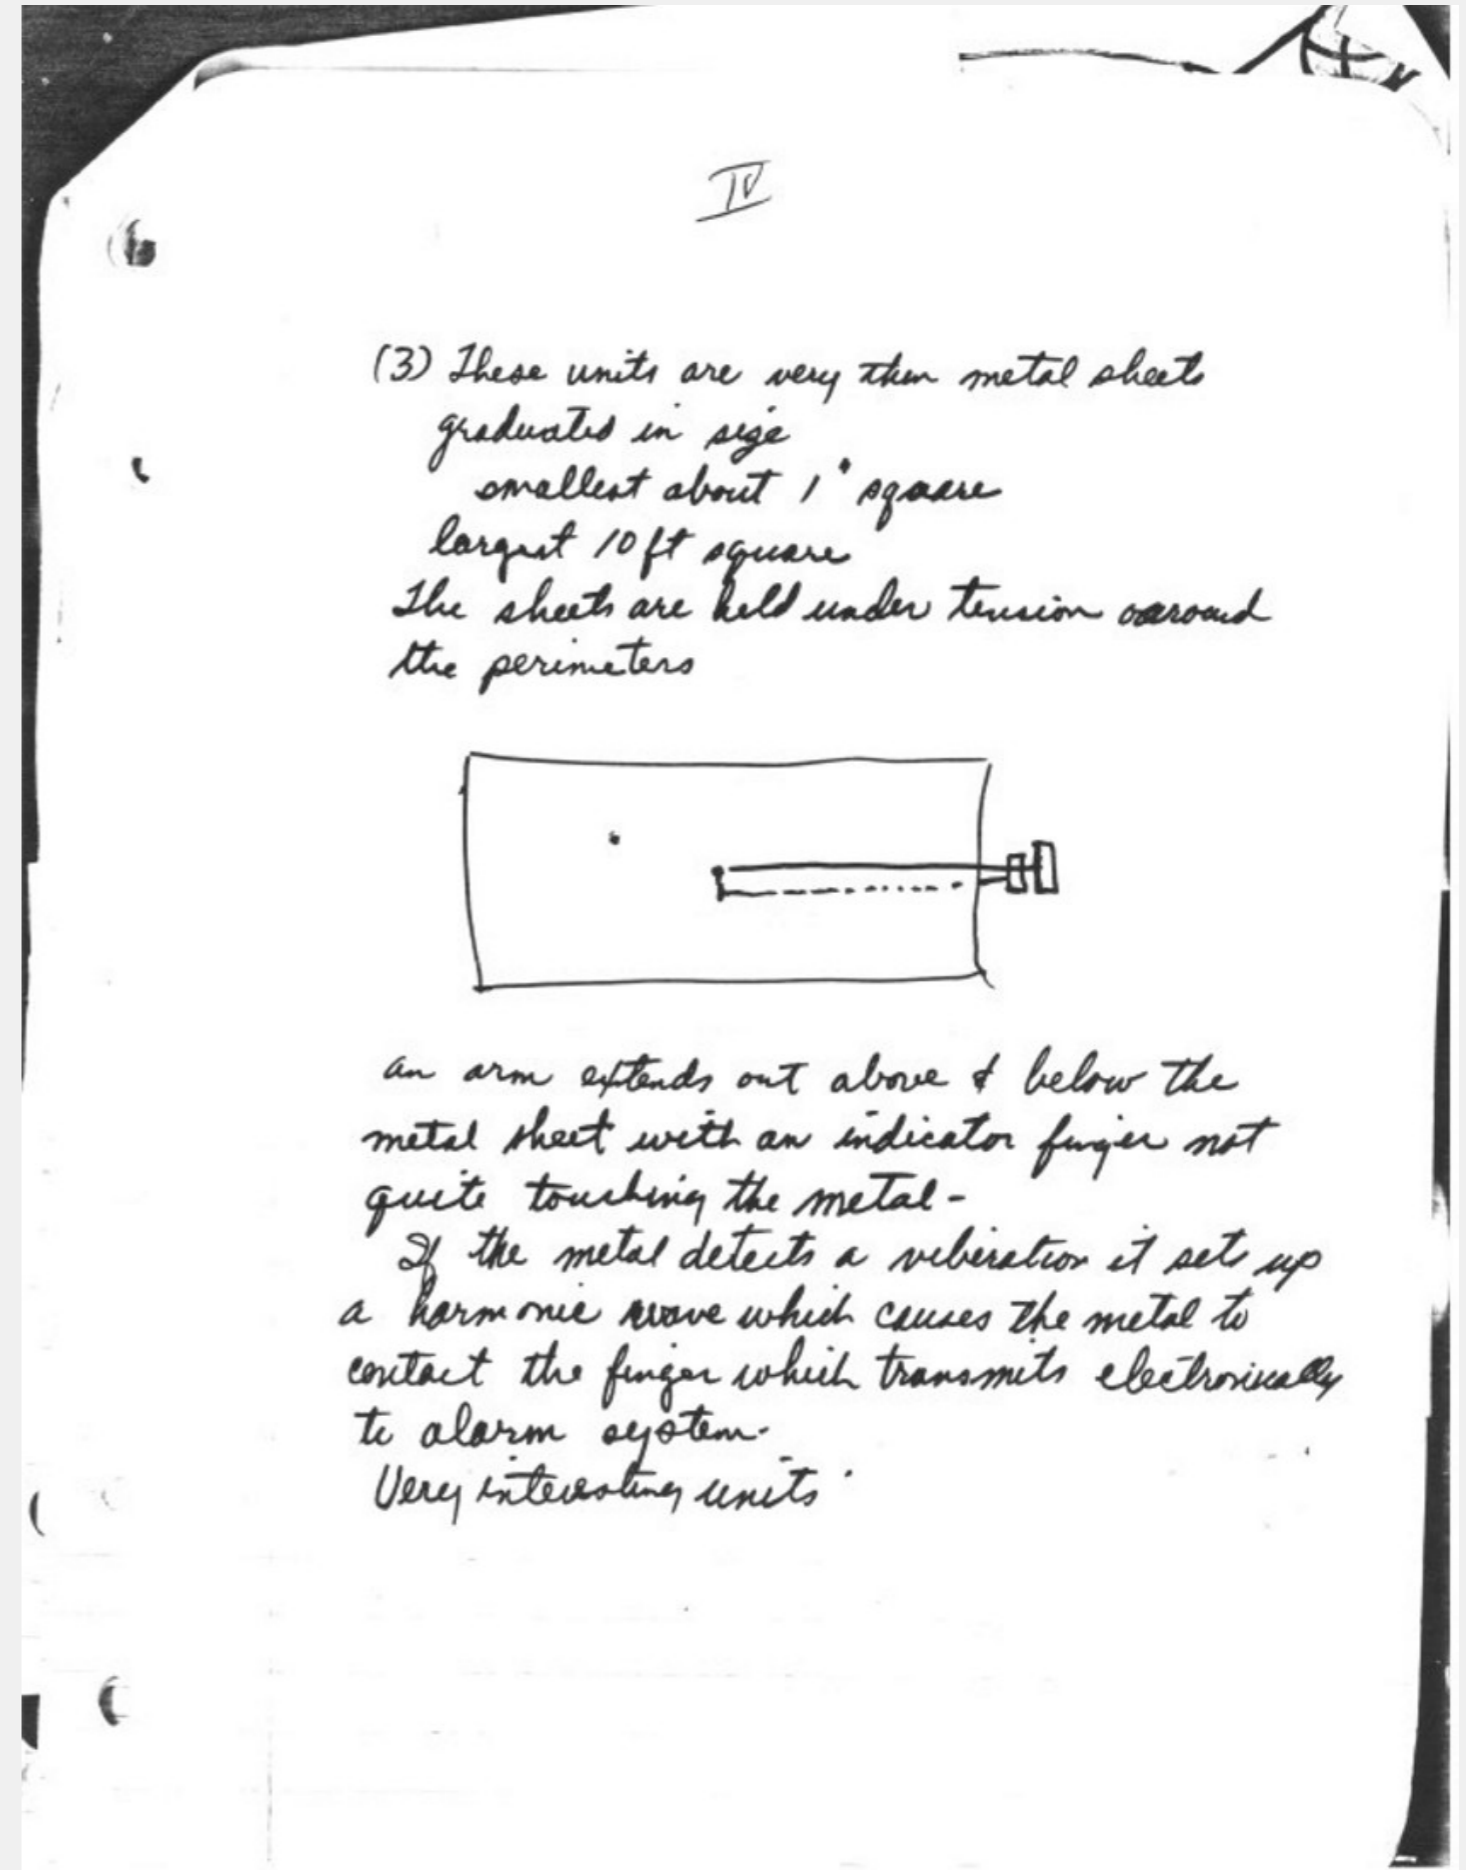 IV
(3) These units are very thin metal sheets
graduated in size
smallest about 1" square
largest 10 ft square
The sheets are held under tension around
the perimeters
an arm extends out above & below the
metal sheet with an indicator finger not
quite touching the metal-
If the metal detects a viberation it sets up
a harmonic wave which causes the metal to
contact the finger which transmits electronically
to alarm system.
Very interesting units